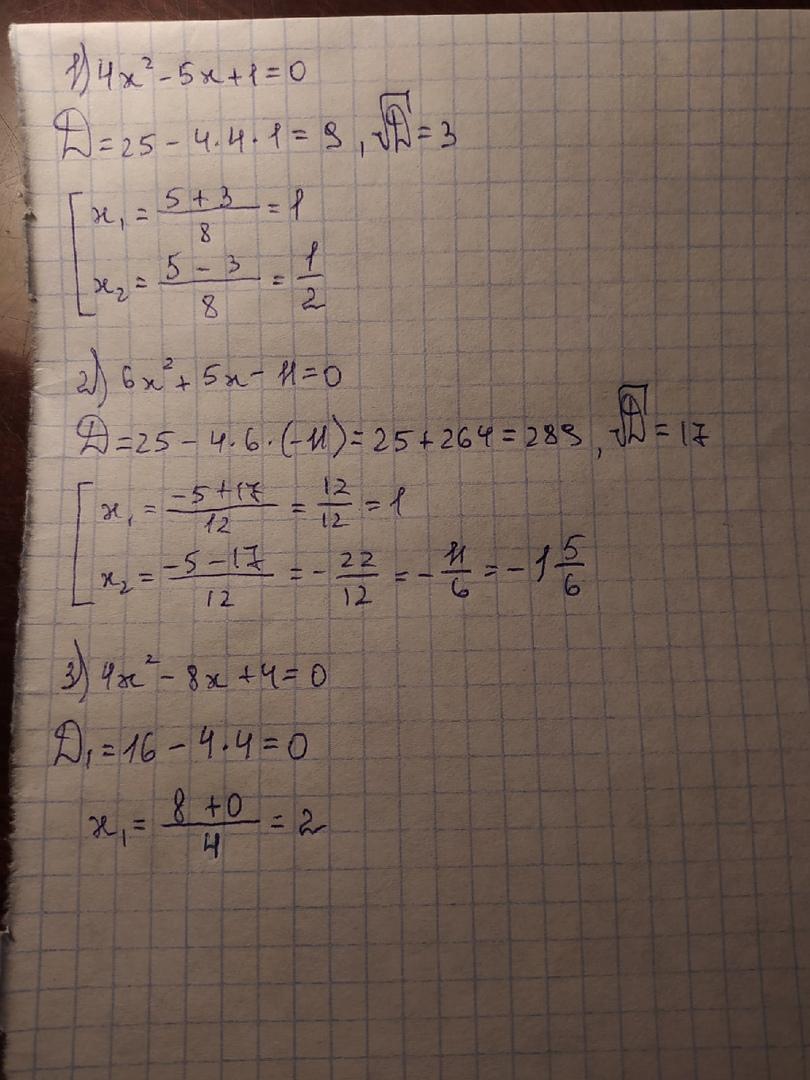 1) 4x² - 5x + 1 = 0
D = 25 - 4·4·1 = 9, √D = 3
[ x₁ = (5 + 3)/8 = 1
x₂ = (5 - 3)/8 = 1/2
2) 6x² + 5x - 11 = 0
D = 25 - 4·6·(-11) = 25 + 264 = 289, √D = 17
[ x₁ = (-5 + 17)/12 = 12/12 = 1
x₂ = (-5 - 17)/12 = -22/12 = -11/6 = -1 5/6
3) 4x² - 8x + 4 = 0
D₁ = 16 - 4·4 = 0
x₁ = (8 + 0)/4 = 2